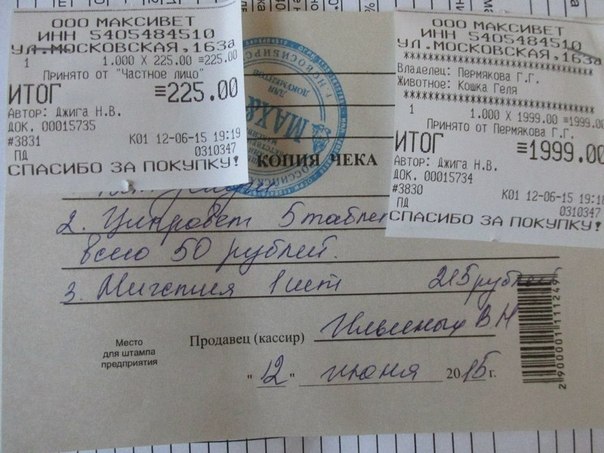 ООО МАКСИВЕТ
ИНН 5405484510
УЛ.МОСКОВСКАЯ,163а
1 1.000 X 225.00 ≡225.00
Принято от "Частное лицо"
ИТОГ ≡225.00
Автор: Джига Н.В.
ДОК. 00015735
#3831 К01 12-06-15 19:19
ПД 0310347
СПАСИБО ЗА ПОКУПКУ!
ООО МАКСИВЕТ
ИНН 5405484510
УЛ.МОСКОВСКАЯ,163а
Владелец: Пермякова Г.Г.
Животное: Кошка Геля
1 1.000 X 1999.00 ≡1999.00
Принято от Пермякова Г.Г.
ИТОГ ≡1999.00
Автор: Джига Н.В.
ДОК. 00015734
#3830 К01 12-06-15 19:18
ПД 0310347
СПАСИБО ЗА ПОКУПКУ!
КОПИЯ ЧЕКА
2. Ципровет 5 табле
всего 50 рублей.
3. 1 шт 215 рублей
Продавец (кассир) Ильиных В Н
Место
для штампа
предприятия
"12" июня 2015г.
2900001111249